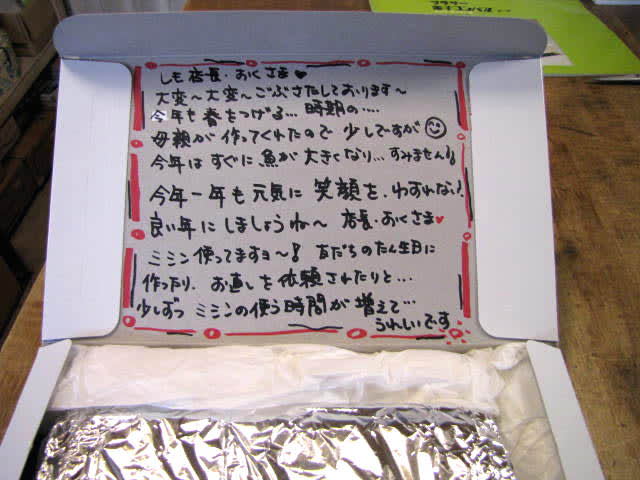 しも店長・おくさま♥
大変～大変～ごぶさたしております～
今年も春をつげる… 時期の‥‥
母親が作ってくれたので少しですが☺
今年はすぐに魚が大きくなり…すみません!!
今年一年も元気に笑顔を、わすれない!
良い年にしましょうね～ 店長・おくさま♥
ミシン使ってますョ～! 友だちのたん生日に
作ったり、お直しを依頼されたりと…
少しずつ ミシンの使う時間が増えて…
うれしいです